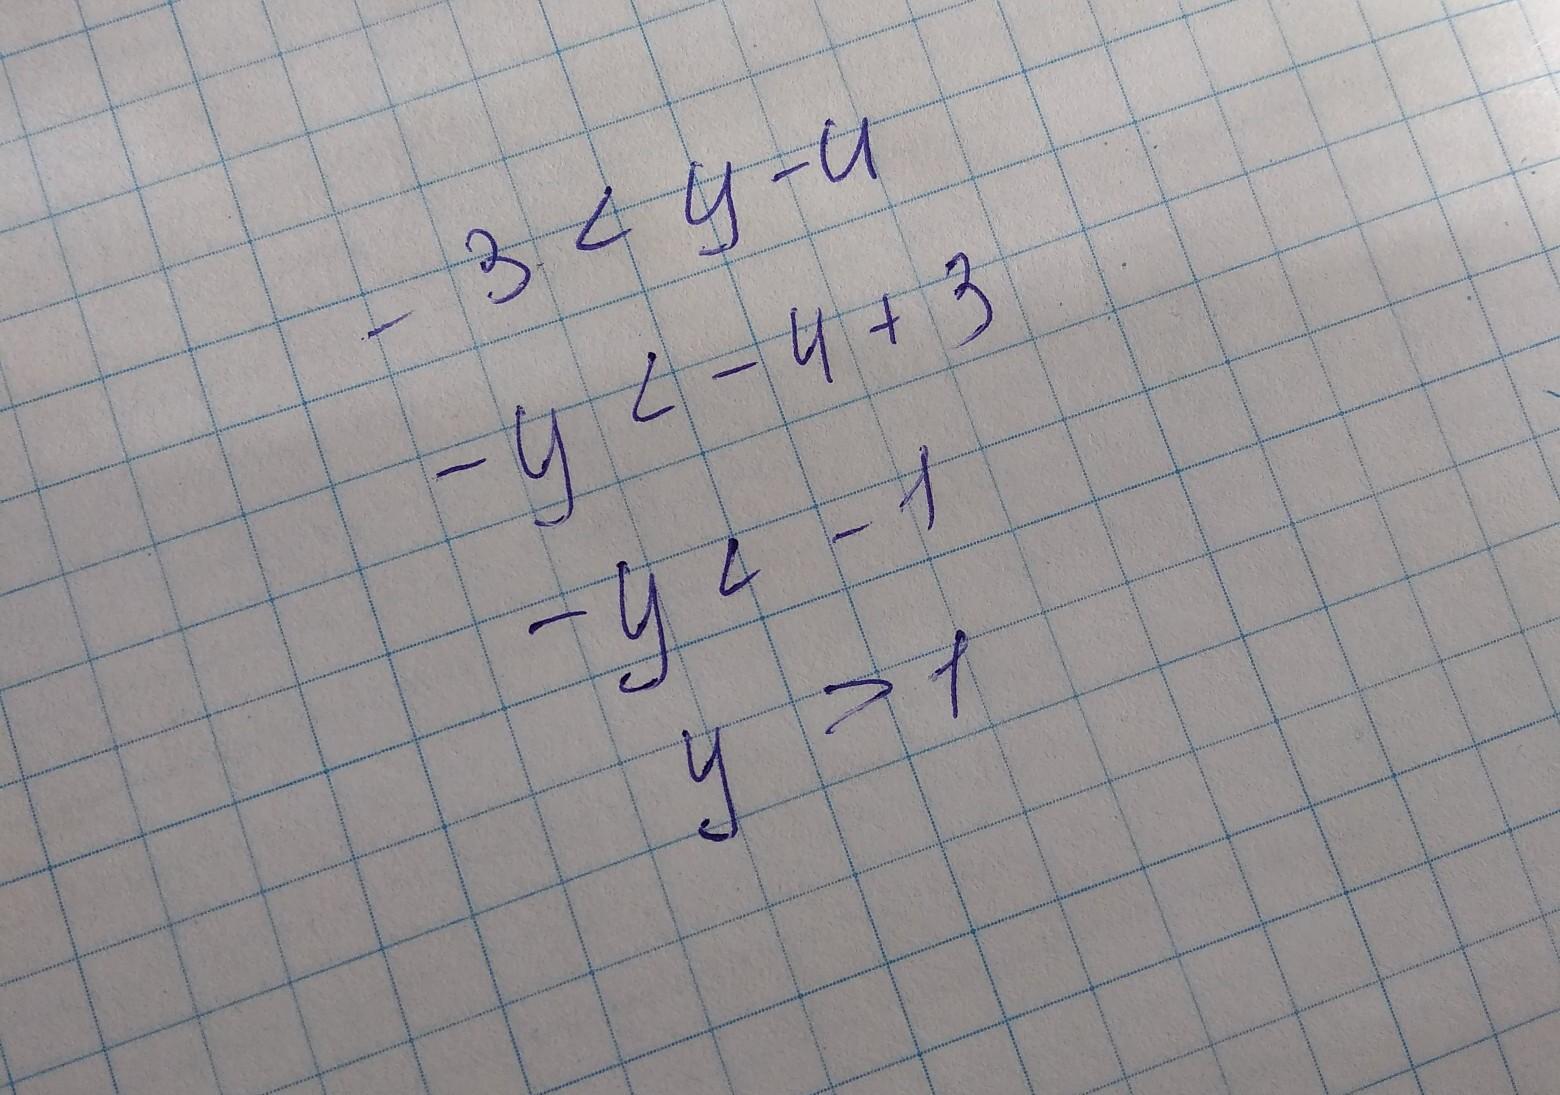 - 3 < y - 4
- y < - 4 + 3
- y < - 1
y > 1